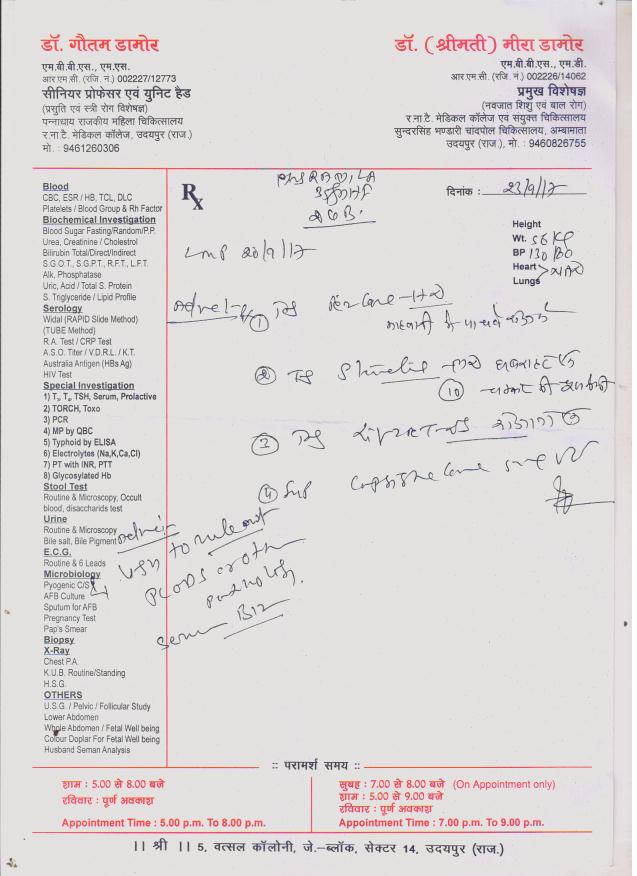 डॉ. गौतम डामोर
एम.बी.बी.एस., एम.एस.
आर.एम.सी. (रजि. नं.) 002227/12773
सीनियर प्रोफेसर एवं युनिट हैड
(प्रसुति एवं स्त्री रोग विशेषज्ञ)
पन्नाधाय राजकीय महिला चिकित्सालय
र.ना.टै. मेडिकल कॉलेज, उदयपुर (राज.)
मो. : 9461260306
डॉ. (श्रीमती) मीरा डामोर
एम.बी.बी.एस., एम.डी.
आर.एम.सी. (रजि. नं.) 002226/14062
प्रमुख विशेषज्ञ
(नवजात शिशु एवं बाल रोग)
र.ना.टै. मेडिकल कॉलेज एवं संयुक्त चिकित्सालय
सुन्दरसिंह भण्डारी चांदपोल चिकित्सालय, अम्बामाता
उदयपुर (राज.), मो. : 9460826755
Blood
CBC, ESR / HB, TCL, DLC
Platelets / Blood Group & Rh Factor
Biochemical Investigation
Blood Sugar Fasting/Random/P.P.
Urea, Creatinine / Cholestrol
Bilirubin Total/Direct/Indirect
S.G.O.T., S.G.P.T., R.F.T., L.F.T.
Alk, Phosphatase
Uric, Acid / Total S. Protein
S. Triglyceride / Lipid Profile
Serology
Widal (RAPID Slide Method)
(TUBE Method)
R.A. Test / CRP Test
A.S.O. Titer / V.D.R.L. / K.T.
Australia Antigen (HBs Ag)
HIV Test
Special Investigation
1) T3, T4, TSH, Serum, Prolactive
2) TORCH, Toxo
3) PCR
4) MP by QBC
5) Typhoid by ELISA
6) Electrolytes (Na,K,Ca,Cl)
7) PT with INR, PTT
8) Glycosylated Hb
Stool Test
Routine & Microscopy, Occult
blood, disaccharids test
Urine
Routine & Microscopy
Bile salt, Bile Pigment
E.C.G.
Routine & 6 Leads
Microbiology
Pyogenic C/S
AFB Culture
Sputum for AFB
Pregnancy Test
Pap's Smear
Biopsy
X-Ray
Chest P.A.
K.U.B. Routine/Standing
H.S.G.
OTHERS
U.S.G. / Pelvic / Follicular Study
Lower Abdomen
Whole Abdomen / Fetal Well being
Colour Doplar For Fetal Well being
Husband Seman Analysis
Rx
दिनांक : 23/9/17
Height
Wt. 56 Kg
BP 130/80
Heart
Lungs NAD
LMP 20/9/17
Advice
①
②
⑩
③
④ Syp
Advice
USG to rule out
PCOD
pathology.
Serum B12
:: परामर्श समय ::
शाम : 5.00 से 8.00 बजे
रविवार : पूर्ण अवकाश
Appointment Time : 5.00 p.m. To 8.00 p.m.
सुबह : 7.00 से 8.00 बजे (On Appointment only)
शाम : 5.00 से 9.00 बजे
रविवार : पूर्ण अवकाश
Appointment Time : 7.00 p.m. To 9.00 p.m.
।। श्री ।। 5, वत्सल कॉलोनी, जे.–ब्लॉक, सेक्टर 14, उदयपुर (राज.)